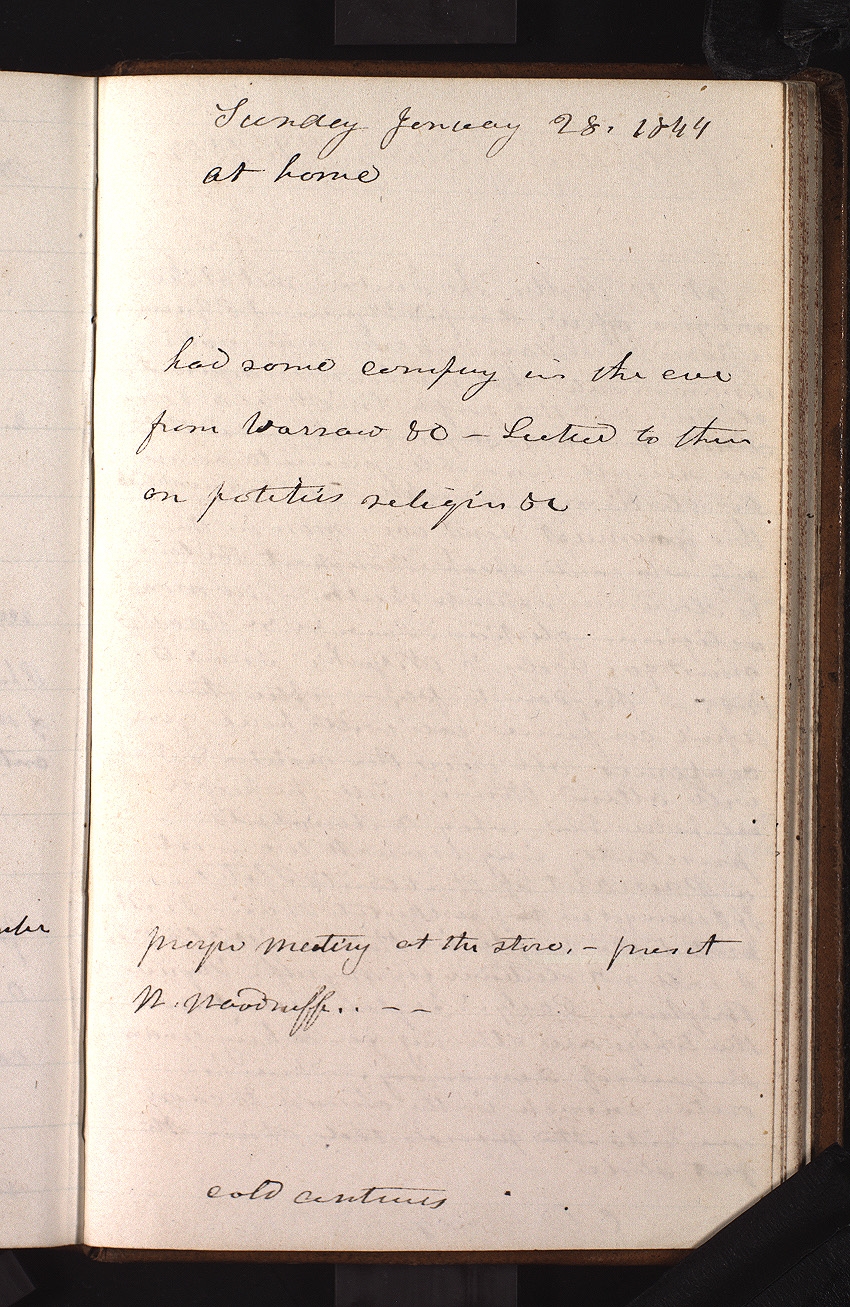 Sunday January 28. 1844
at home
had some company in the eve
from Warsaw &c — Lectured to them
on politics religin &c
prayer meeting at the store. – preset
W. Woodruff.. – –
cold continues